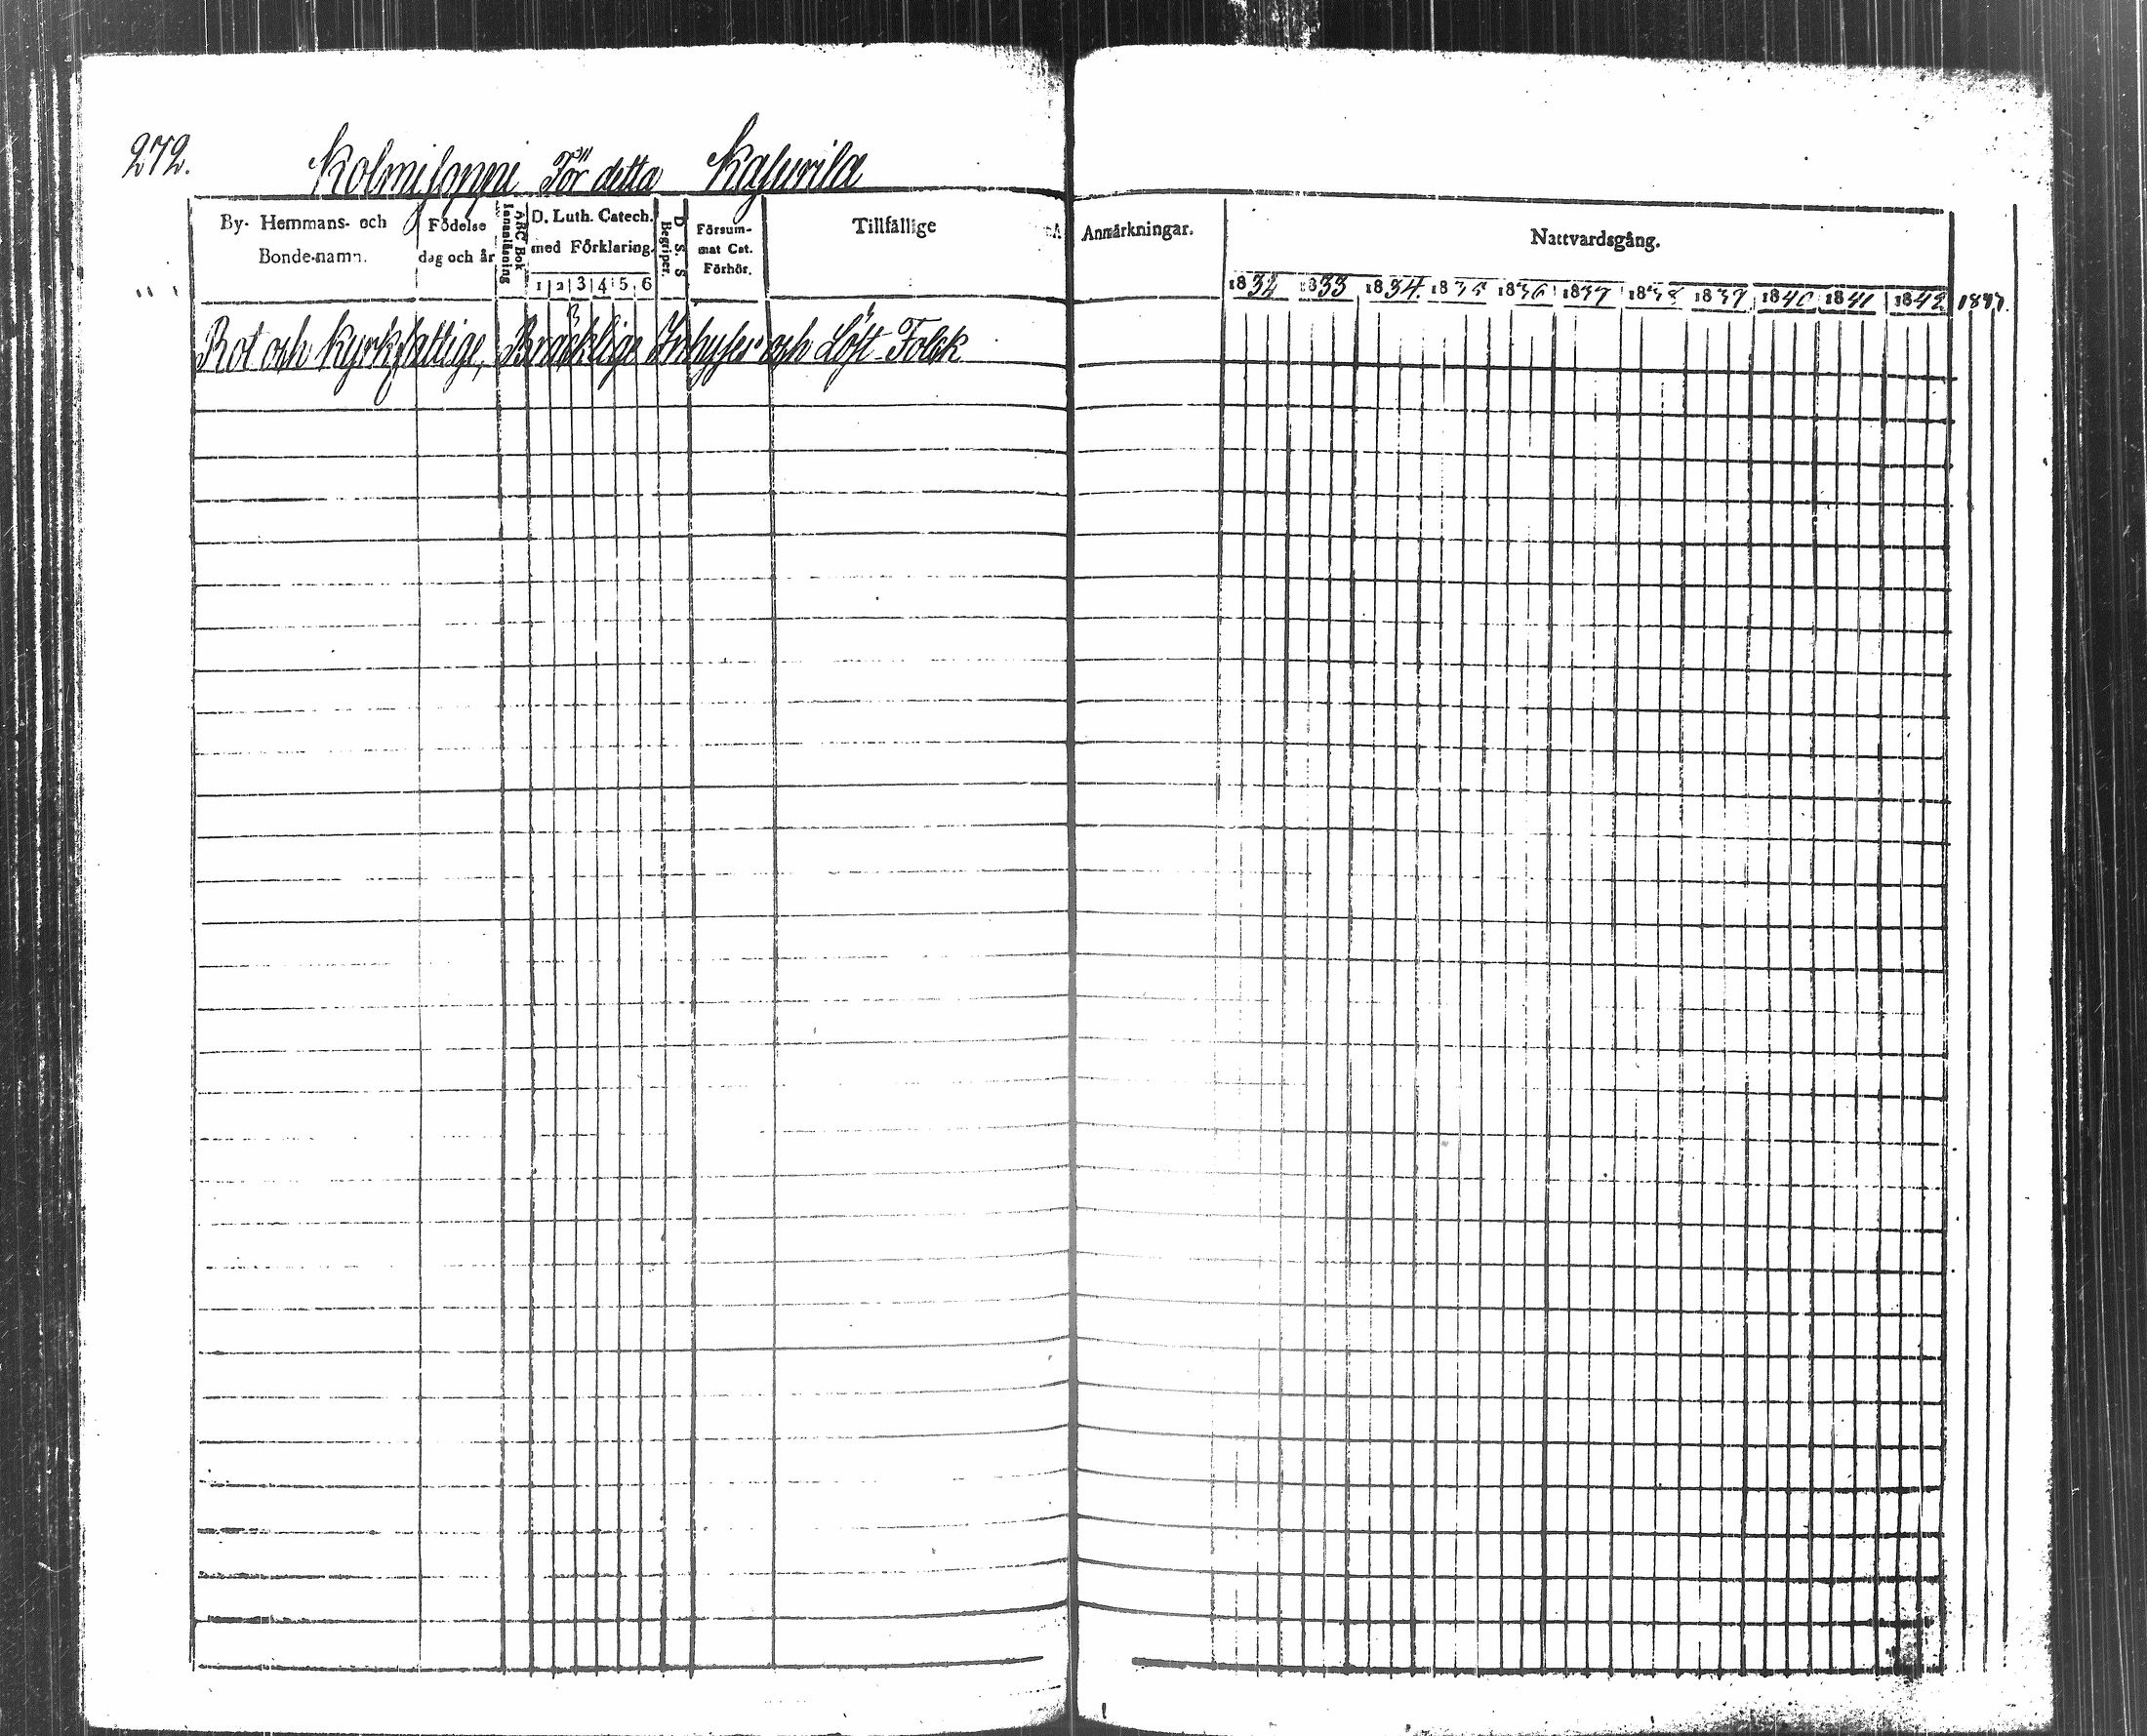 272. Kolmisoppi För detta Kasurila
By- Hemmans- och Bonde-namn.
Födelse dag och år
ABC Bok Innanläsning
D. Luth. Catech. med Förklaring.
1 2 3 4 5 6
D. S. S Begriper.
Försum-mat Cat. Förhör.
Tillfällige
Anmärkningar.
Nattvardsgång.
1832 1833 1834. 1835 1836 1837 1838 1839 1840 1841 1842
Rot och Kyrkfattige, Bräcklige Inhyser och Löst Folck